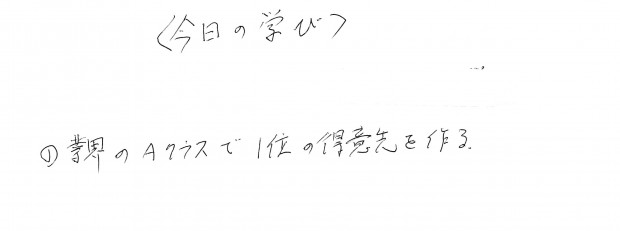 〈今日の学び〉
①業界のAクラスで1位の得意先を作る.